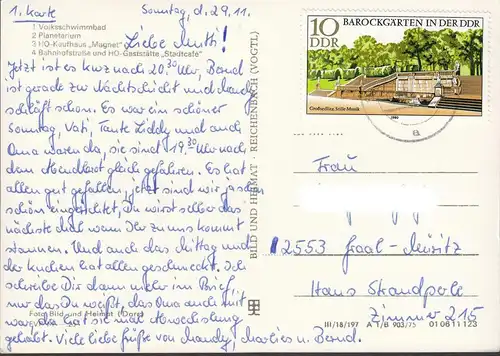 1. Karte
Sonntag, d. 29.11.
1 Volksschwimmbad
2 Planetarium
3 HO-Kaufhaus "Magnet"
4 Bahnhofstraße und HO-Gaststätte "Stadtcafé"
Liebe Mutti!
Jetzt ist es kurz nach 20.30 Uhr, Bernd
ist gerade zur Nachtschicht und Mandy
schläft schon. Es war ein schöner
Sonntag, Vati, Tante Liddy und auch
Oma waren da, sie sind 19.30 Uhr nach
dem Abendbrot gleich gefahren. Es hat
allen gut gefallen, jetzt sind wir ja schon
schön eingerichtet, Du wirst selber das
nächste mal wenn Ihr zu uns kommt
staunen. Und auch das Mittag und
der Kuchen hat allen geschmeckt. Ich
schreibe Dir dann mehr im Brief,
nur das Du weißt, das Oma auch mit
war, da hat sie mal Abwechslung
gehabt. Viele liebe Grüße von Mandy, Marlies u. Bernd.
Foto Bild und Heimat
BILD UND HEIMAT · REICHENBACH (VOGTL)
10
DDR
BAROCKGÄRTEN IN DER DDR
Großsedlitz, Stille Musik
Frau
2553 Graal-Müritz
Haus Strandperle
Zimmer 215
III/18/197 A 1/B 903/75 01 08 11 123